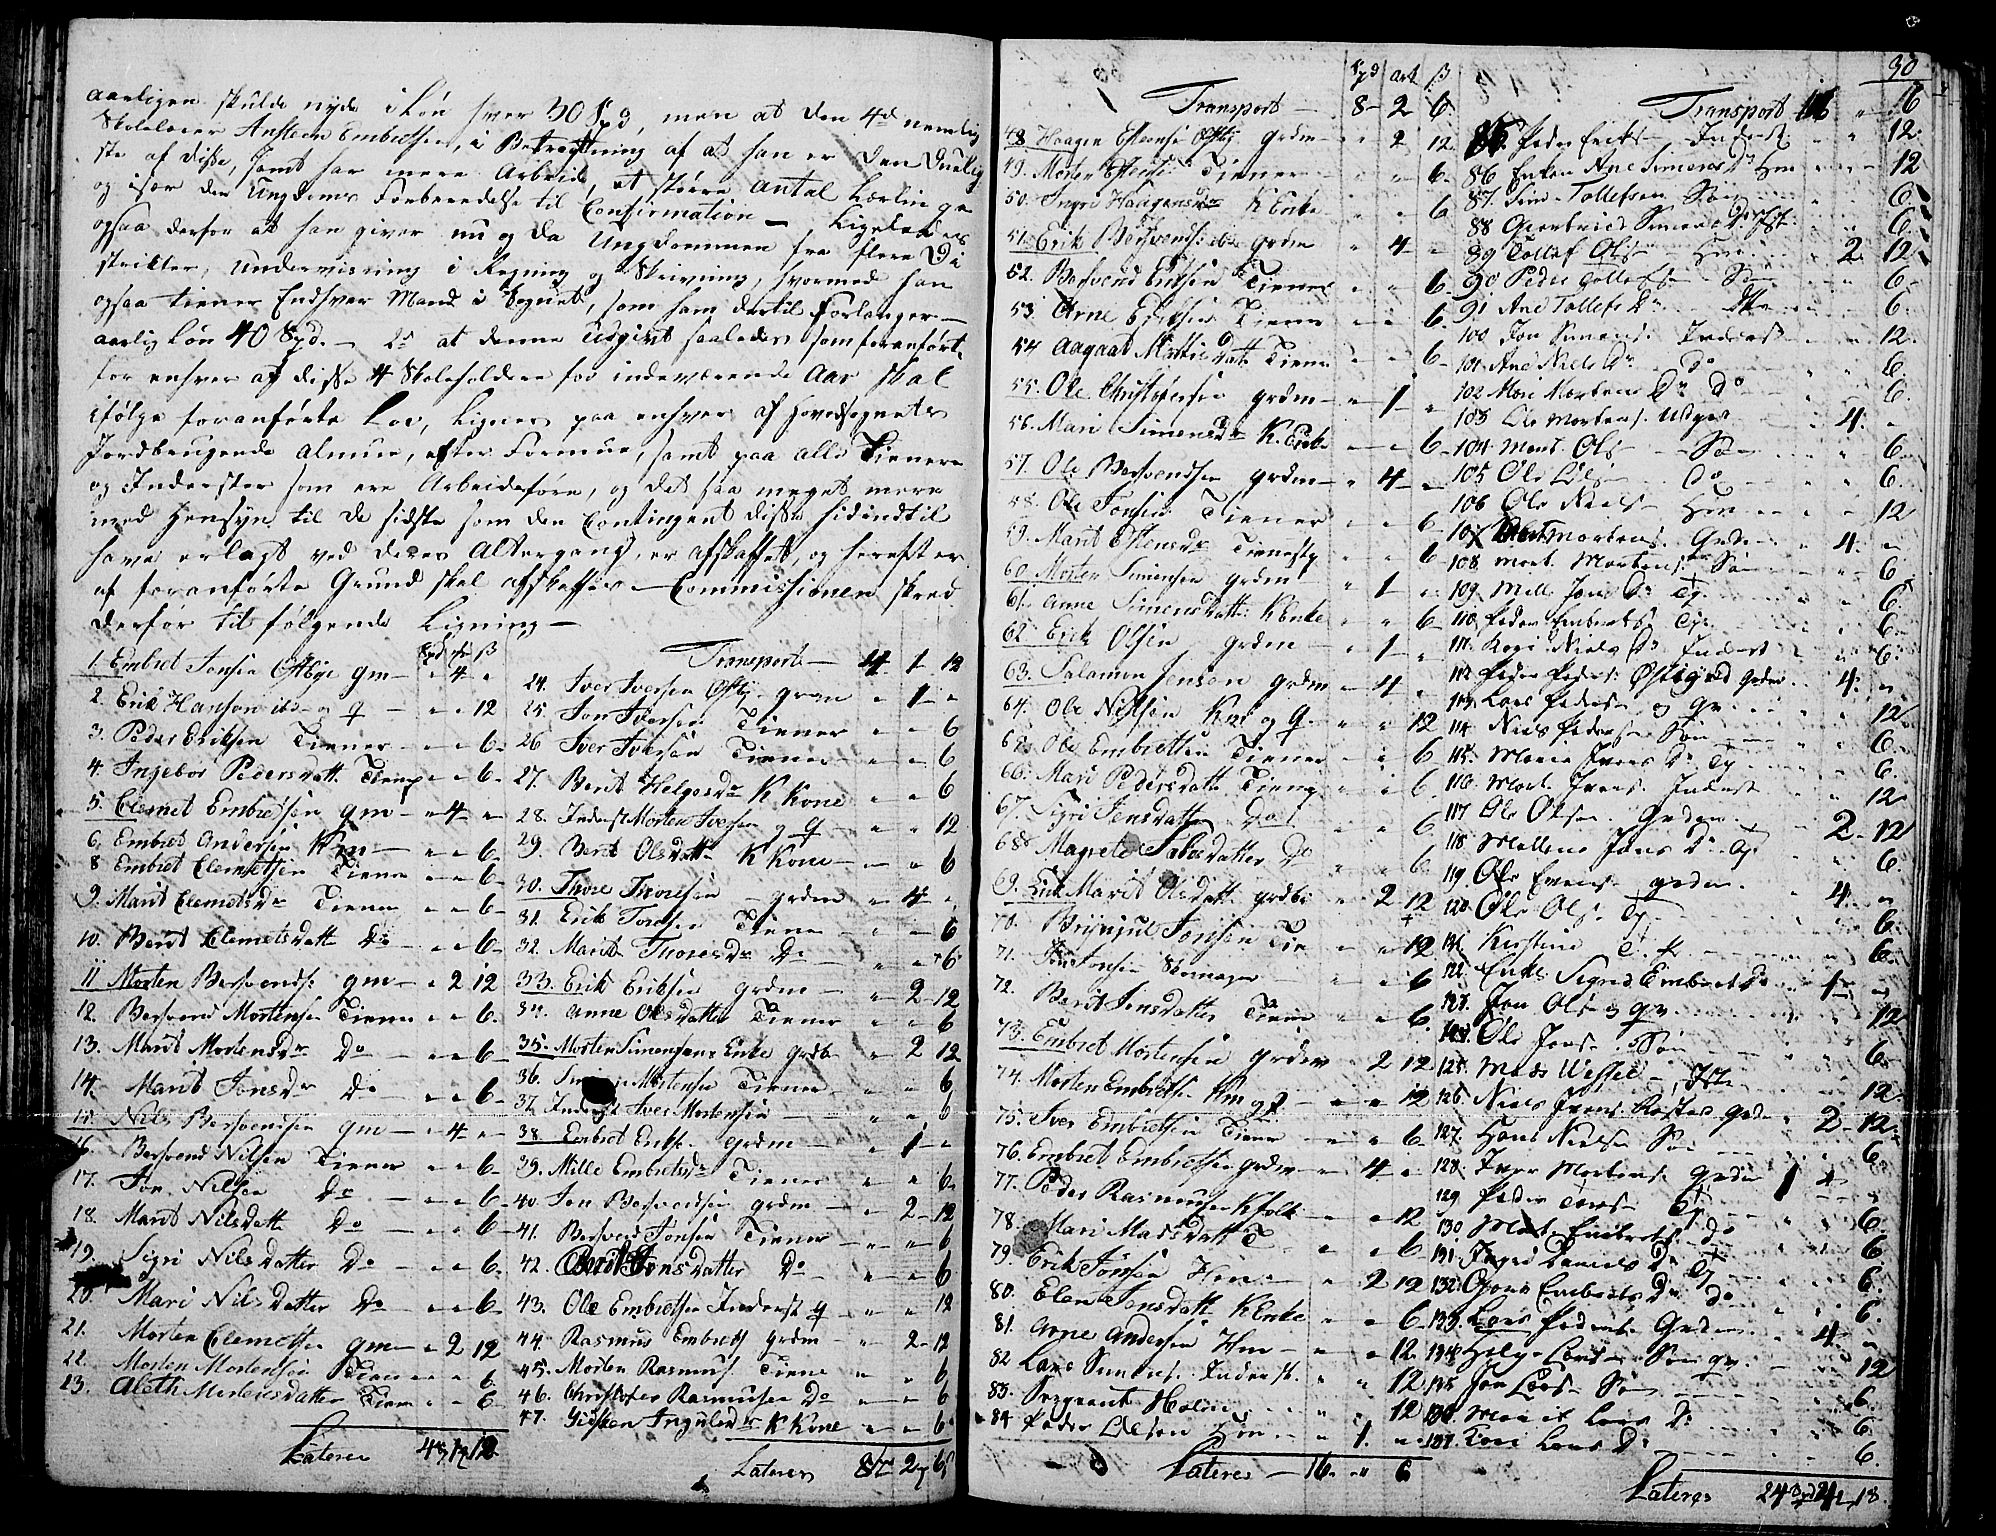 aarligen skulde nyde i Løn hver 30 Spd, men at den 4de nemlig
Skolelærer Ansteen Embretsen, i Betragtning af at han er den duelig
ste af disse, samt har mere Arbeide, et større Antal Lærlinge
og især den Ungdoms Forberedelse til Confirmation — Ligeledes
ogsaa derfor at han giver nu og da Ungdommen fra flere Di
strikter, Underviisning i Regning og Skrivning, hvormed han
ogsaa tiener Enhver Mand i Sognet, som ham dertil forlanger —
aarlig Løn 40 Spd. — 2o at denne Udgivt saaledes som foranført
for enhver af disse 4 Skoleholdere for indeværende Aar skal
ifølge foranførte Lov, Lignes paa enhver af Hovedsognets
Jordbrugende Almue, efter Formue, samt paa alle Tienere
og Inderster som ere Arbeidsføre, og det saa meget mere
med Hensyn til de sidste som den Contingent disse hidindtil
have erlagt ved deres Altergang, er afskaffet, og herefter
af foranførte Grund skal afskaffes — Commissionen skred
derfor til følgende Ligning —
1. Embret Jonsen Østbye gm — " 4 "
2. Erik Hanson ibd og q — " " 12
3. Peder Eriksen Tiener — " " 6
4. Ingebor Pedersdatt. Tieng " " 6
5. Clemet Embretsen gm — " 4 "
6. Embret Andersen Km — " " 6
8 Embret Clemetsen Tiener " " 6
9. Marit Clemetsdr Tiener " " 6
10. Berit Clemetsdatt Do " " 6
11 Morten Bersvends: gm — " 2 12
12. Bersvend Mortensen Tiener " " 6
13. Marit Mortensdr Do " " 6
14. Marit Jonsdr Do " " 6
15. Nils Bersvendsen gm — " 4 "
16. Bersvend Nilsen Tiener " " 6
17. Jon Nilsen Do " " 6
18. Marit Nilsdatt Do " " 6
19. Sigri Nilsdatter Do " " 6
20. Mari Nilsdatter Do " " 6
21. Morten Clemetsen gm — " 2 12
22. Morten Mortensen Tiener " " 6
23. Aleth Mortensdatter Tien " " 6
Lateres 4 1 12
Transport — 4 1 12
24. Iver Iversen Østby grdm " 1 "
25. Jon Iversen Tiener " " 6
26 Iver Iversen Tiener " " 6
27. Berit Helgesdr K Kone " " 6
28. Inderst Morten Iversen og q " " 12
29. Berit Olsdatt K Kone " " 6
30. Thore Thoresen grdm " 4 "
31. Erik Toresen Tiener " " 6
32. Marit Thoresdr Do " " 6
33. Erik Eriksen grdm " 2 12
34. Anne Olsdatter Tiener " " 6
35. Morten Simensens Enke grdb " 2 12
36. Mortensen Tiener " " 6
37. Inderst Iver Mortensen " " 6
38. Embret Eriks. grdm " 1 "
39. Mille Embretsdr Tiener " " 6
40. Jon Bersvendsen grdm " 2 12
41. Bersvend Jonsen Tiener " " 6
42. Berit Jonsdatter Do " " 6
43. Ole Embretsen Inderst q " " 12
44. Rasmus Embrets grdm " 2 12
45. Morten Rasmus. Tiener " " 6
46. Christofer Rasmusen Do " " 6
47. Kirsten Ingulsdr K Kone " " 6
Lateres 8 2 6
Spd ort ß
Transport — 8 2 6
48. Haagen Estensen Østby grdm " 2 12
49. Morten Estensen Tiener " " 6
50. Ingri Haagensdr K Enke " " 6
51. Erik Bersvends: ibd grdm " 4 "
52. Bersvend Eriksen Tiener " " 6
53. Arne Eriksen Tiener " " 6
54 Aagaat Mattisdatt Tiener " " 6
55. Ole Christofersen grdm " 1 "
56. Mari Simensdr K. Enke " " 6
57. Ole Bersvendsen grdm " 4 "
58. Ole Jonsen Tiener " " 6
59. Marit Estensdr Tienestp " " 6
60. Morten Simensen grdm " 1 "
61. Anne Simensdatt: K Enke " " 6
62. Erik Olsen grdm " 1 "
63. Salamon Jensen grdm " 4 "
64. Ole Nilsen Km og q. " " 12
65. Ole Embretsen Tiener " " 6
66. Mari Pedersdatt Tieng " " 6
67. Sigri Jensdatter Do " " 6
68. Magrete datter Do " " 6
69. Enke Marit Olsdatt. grdbr " 2 12
70. Brynjul Jonsen Tie " " 12
71. Jonsen Skomager " " 6
72. Berit Jensdatter Tiener " " 6
73. Embret Mortensen grdm " 2 12
74. Morten Embretsen Hm og q " " 12
75. Iver Embretsen Tiener " " 6
76. Embret Embretsen grdm " 4 "
77. Peder Rasmusen Kfolk " " 12
78. Mari Madsdatt T " " 6
79. Erik Jonsen Hm " 2 12
80. Elen Jensdatt K Enke " " 6
81. Arne Andersen Hm " " 12
82 Lars Inderst. " " 12
83. Sergeant Holm " " 12
84 Peder Olson Hm " 1. "
Lateres — 16 " 6
30
Transport 16 " 6
85. Peder Eriks — Inderst " 12
86 Enken Ane Simens Dr Hm " " 12
87. Sim. Tollefsen Søn " 6
88 Giertrud Simens Dr Ist. " 6
89 Tollef Ols — Hm 2 12
90 Peder Tollefs — Søn " 6
91 Ane Tollefs Dr " 6
100 Jon Simens. Inderst " 12
101. Ane Niels Dr Do " 6
102 Mari Mortens Dr Do " 6
103 Ole Mortens. Udgrd 4. "
104. Mort. Ols — Søn " 6
105 Ole Ols — Do " 6
106 Ole Niels — Hm " 12
107 Mortens. Grdm 4. "
108. Mort. Mortens. Søn " 6
109. Mille Jons Dr Tp " 6
110. Peder Embrets Tp. " 6
111. Kari Niels Dr Inderst " 6
112 Peder Peders. Østbye Grdm 4. "
113. Lars Peders og qv. " 12
114. Niels Peders — Søn " 6
115. Marie Ivers Dr Tp " 6
116. Mort. Ivers. Inderst " 12
117 Ole Olsen. Grdm. 2 12
118 Mallene Jons Dr Tp " 6
119. Ole Evens grdm. 4. "
120. Ole Ols. Tp " 6
121 Kirstine " 6
122. Enke Sigrid Embrets Dr 1 "
123. Jon Ols og qv. " 12
124. Ole Jons Søn " 6
125. Mads Wessel — Ist. " 12
126. Niels Ivers. Grdm 2 12
127. Hans Niels — Søn " 6
128. Iver Mortens. Grdm 1 "
129 Peder Tp " 6
130. Mort. Embrets Do " 6
131. Ingri Daniels Dr Tp " 6
132. Embrets Dr Do " 6
133. Lars Peders. Grdm 4. "
134. Helge Lars — Søn qv. " 12
135 Jon Lars — Søn " 6
136. Marit Lars Dr " 6
137. Kari Lars Dr " 6
Lateres 24 Spd 4 18